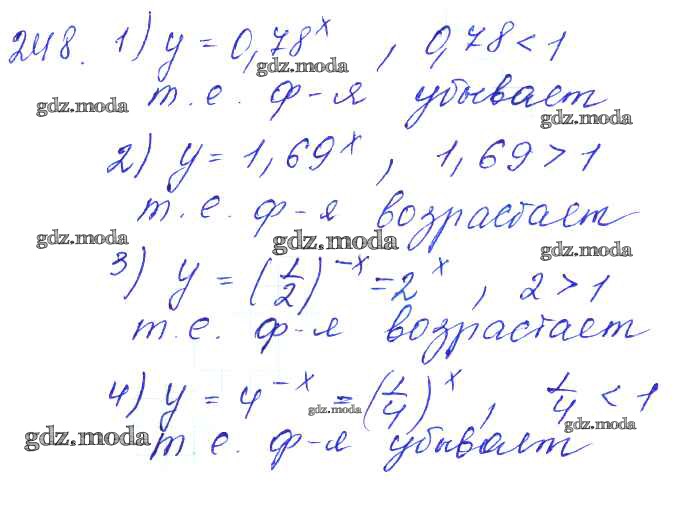 248. 1) y = 0,78^x , 0,78 < 1
gdz.moda
gdz.moda т.е. ф-я убывает gdz.moda
2) y = 1,69^x , 1,69 > 1
т.е. ф-я возрастает
gdz.moda gdz.moda gdz.moda
3) y = (1/2)^-x = 2^x , 2 > 1
т.е. ф-я возрастает
4) y = 4^-x = (1/4)^x , 1/4 < 1
gdz.moda gdz.moda
gdz.moda т.е. ф-я убывает